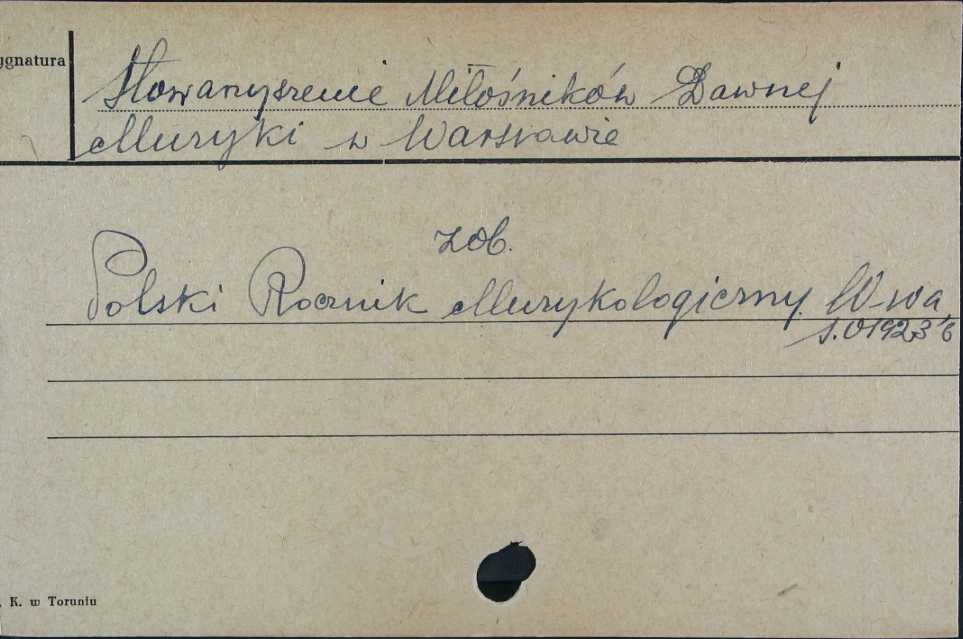 ygnatura
Stowarzyszenie Miłośników Dawnej
Muzyki w Warszawie
zob.
Polski Rocznik Muzykologiczny. W-wa,
K. w Toruniu